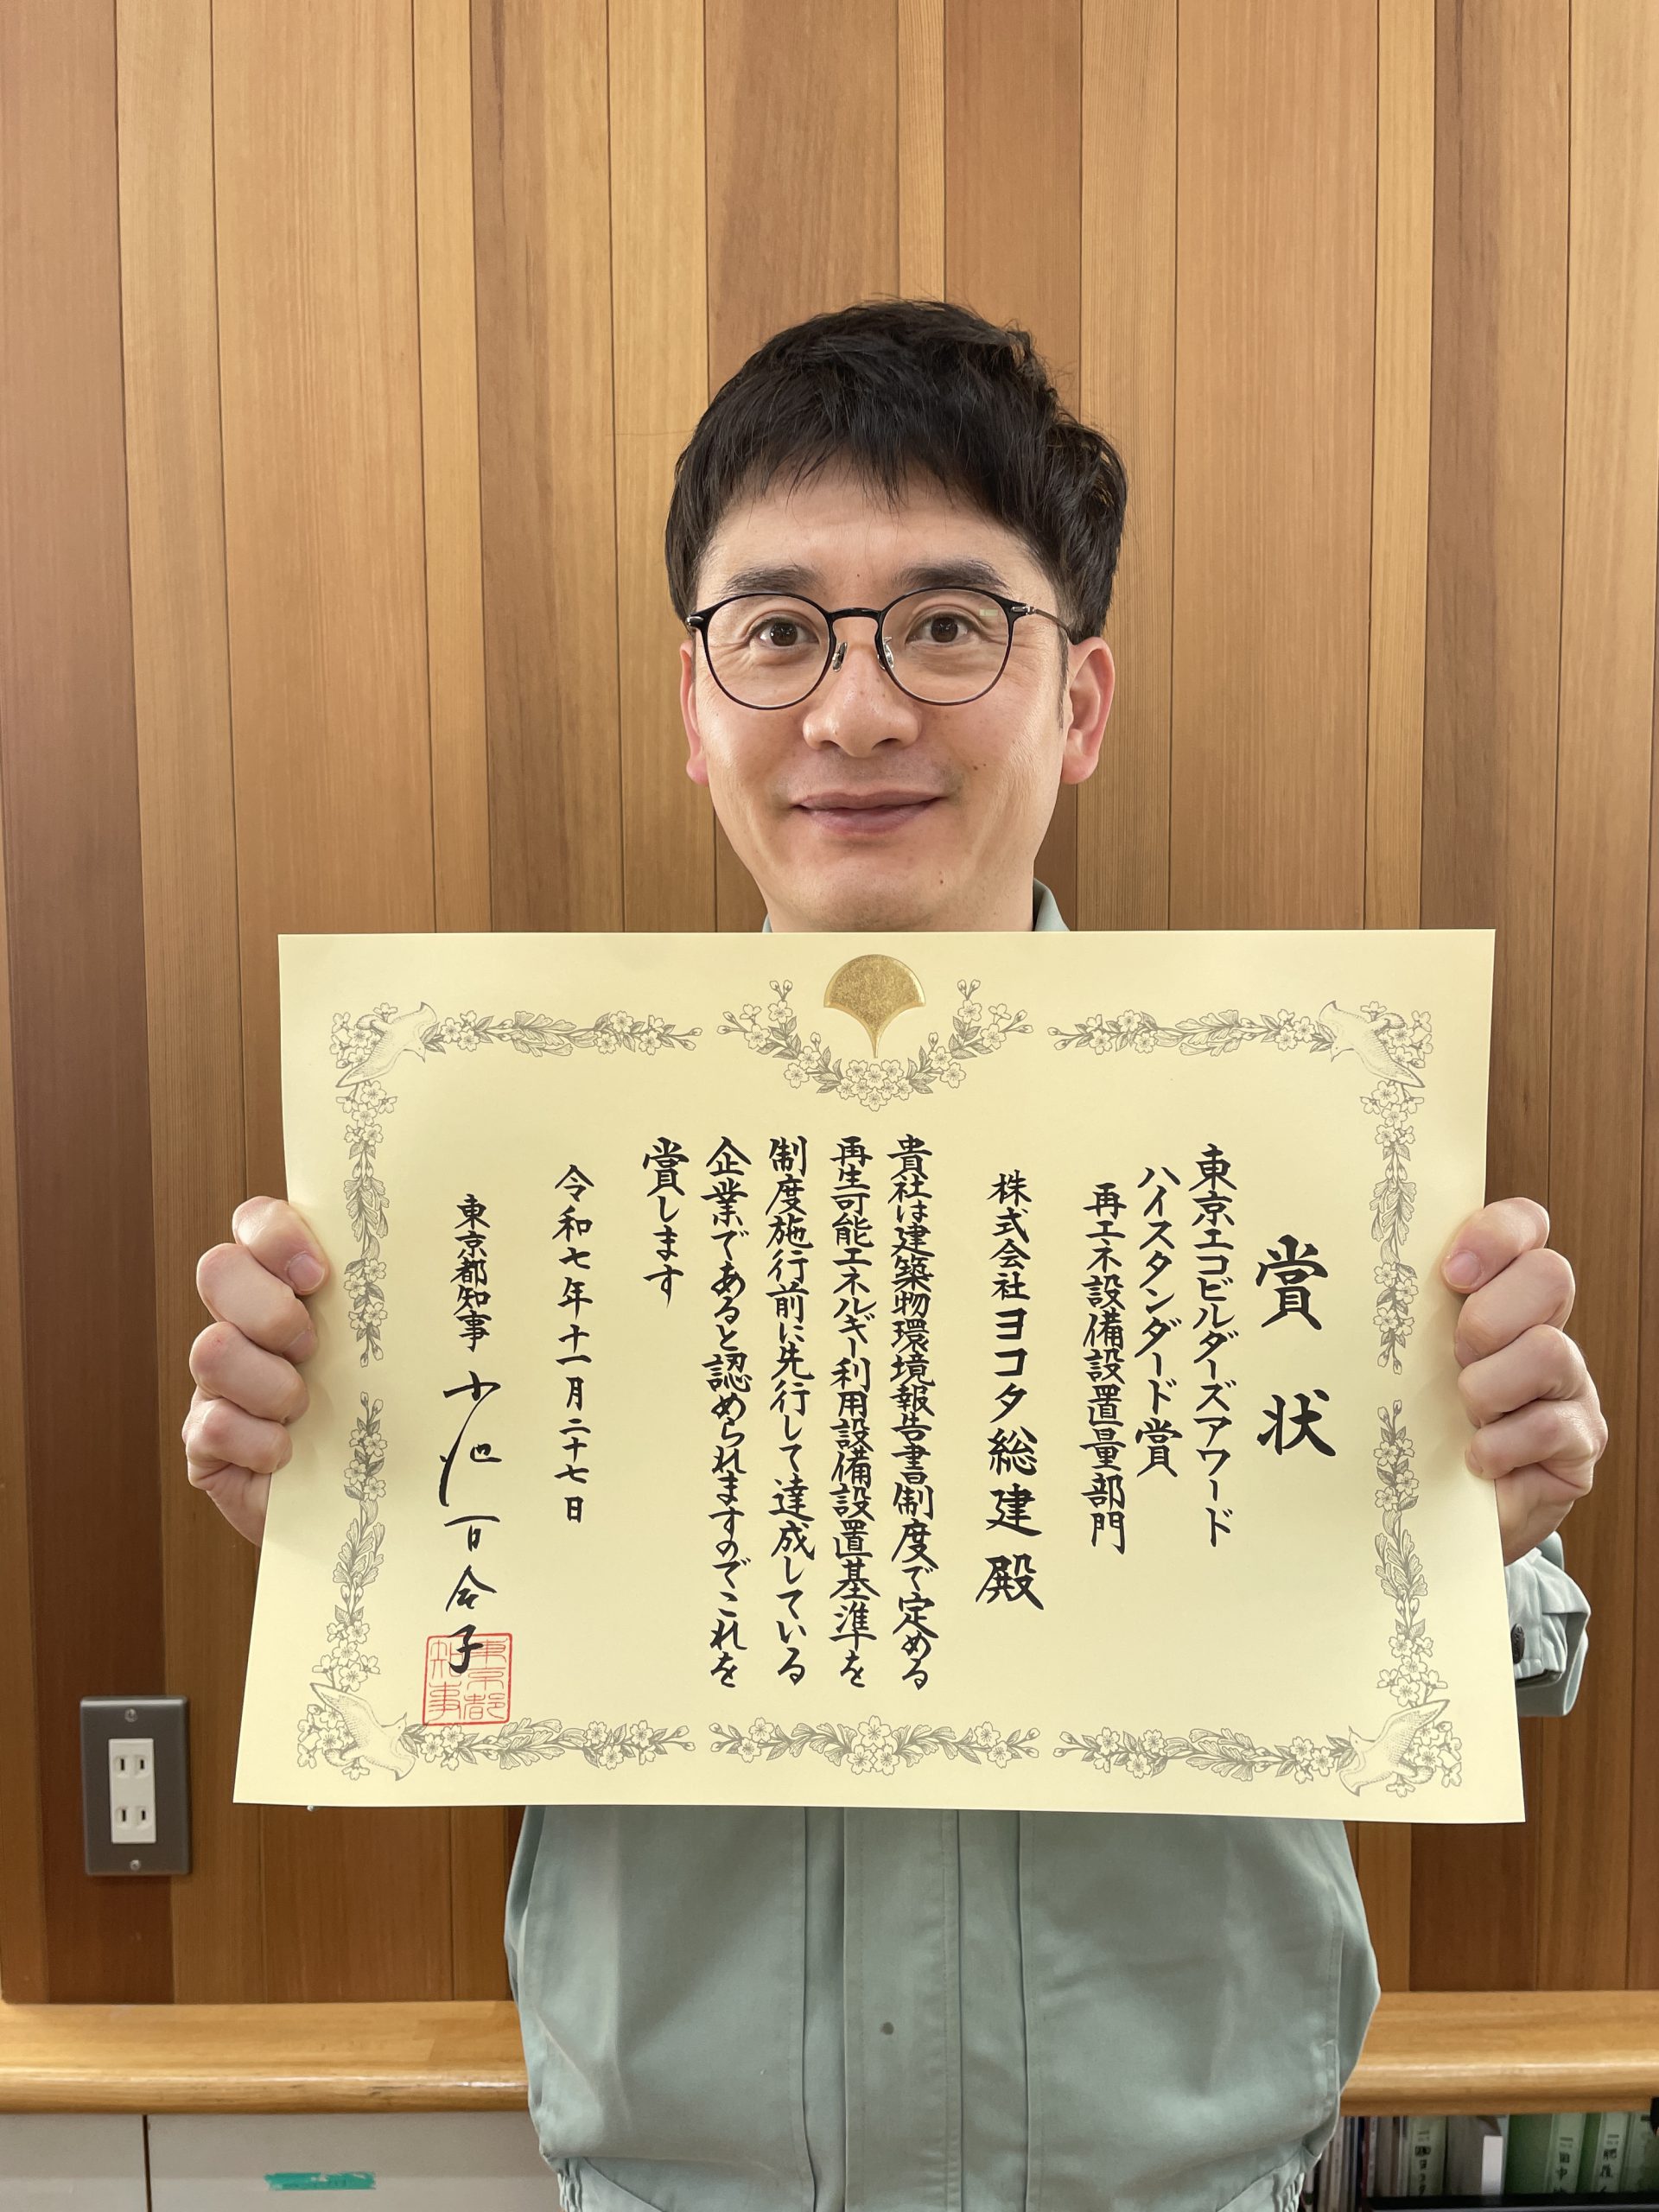 賞状
東京エコビルダーズアワード
ハイスタンダード賞
再エネ設備設置量部門
株式会社ヨコタ総建殿
貴社は建築物環境報告書制度で定める
再生可能エネルギー利用設備設置基準を
制度施行前に先行して達成している
企業であると認められますのでこれを
賞します
令和七年十一月二十七日
東京都知事 小池百合子
東京都
知事